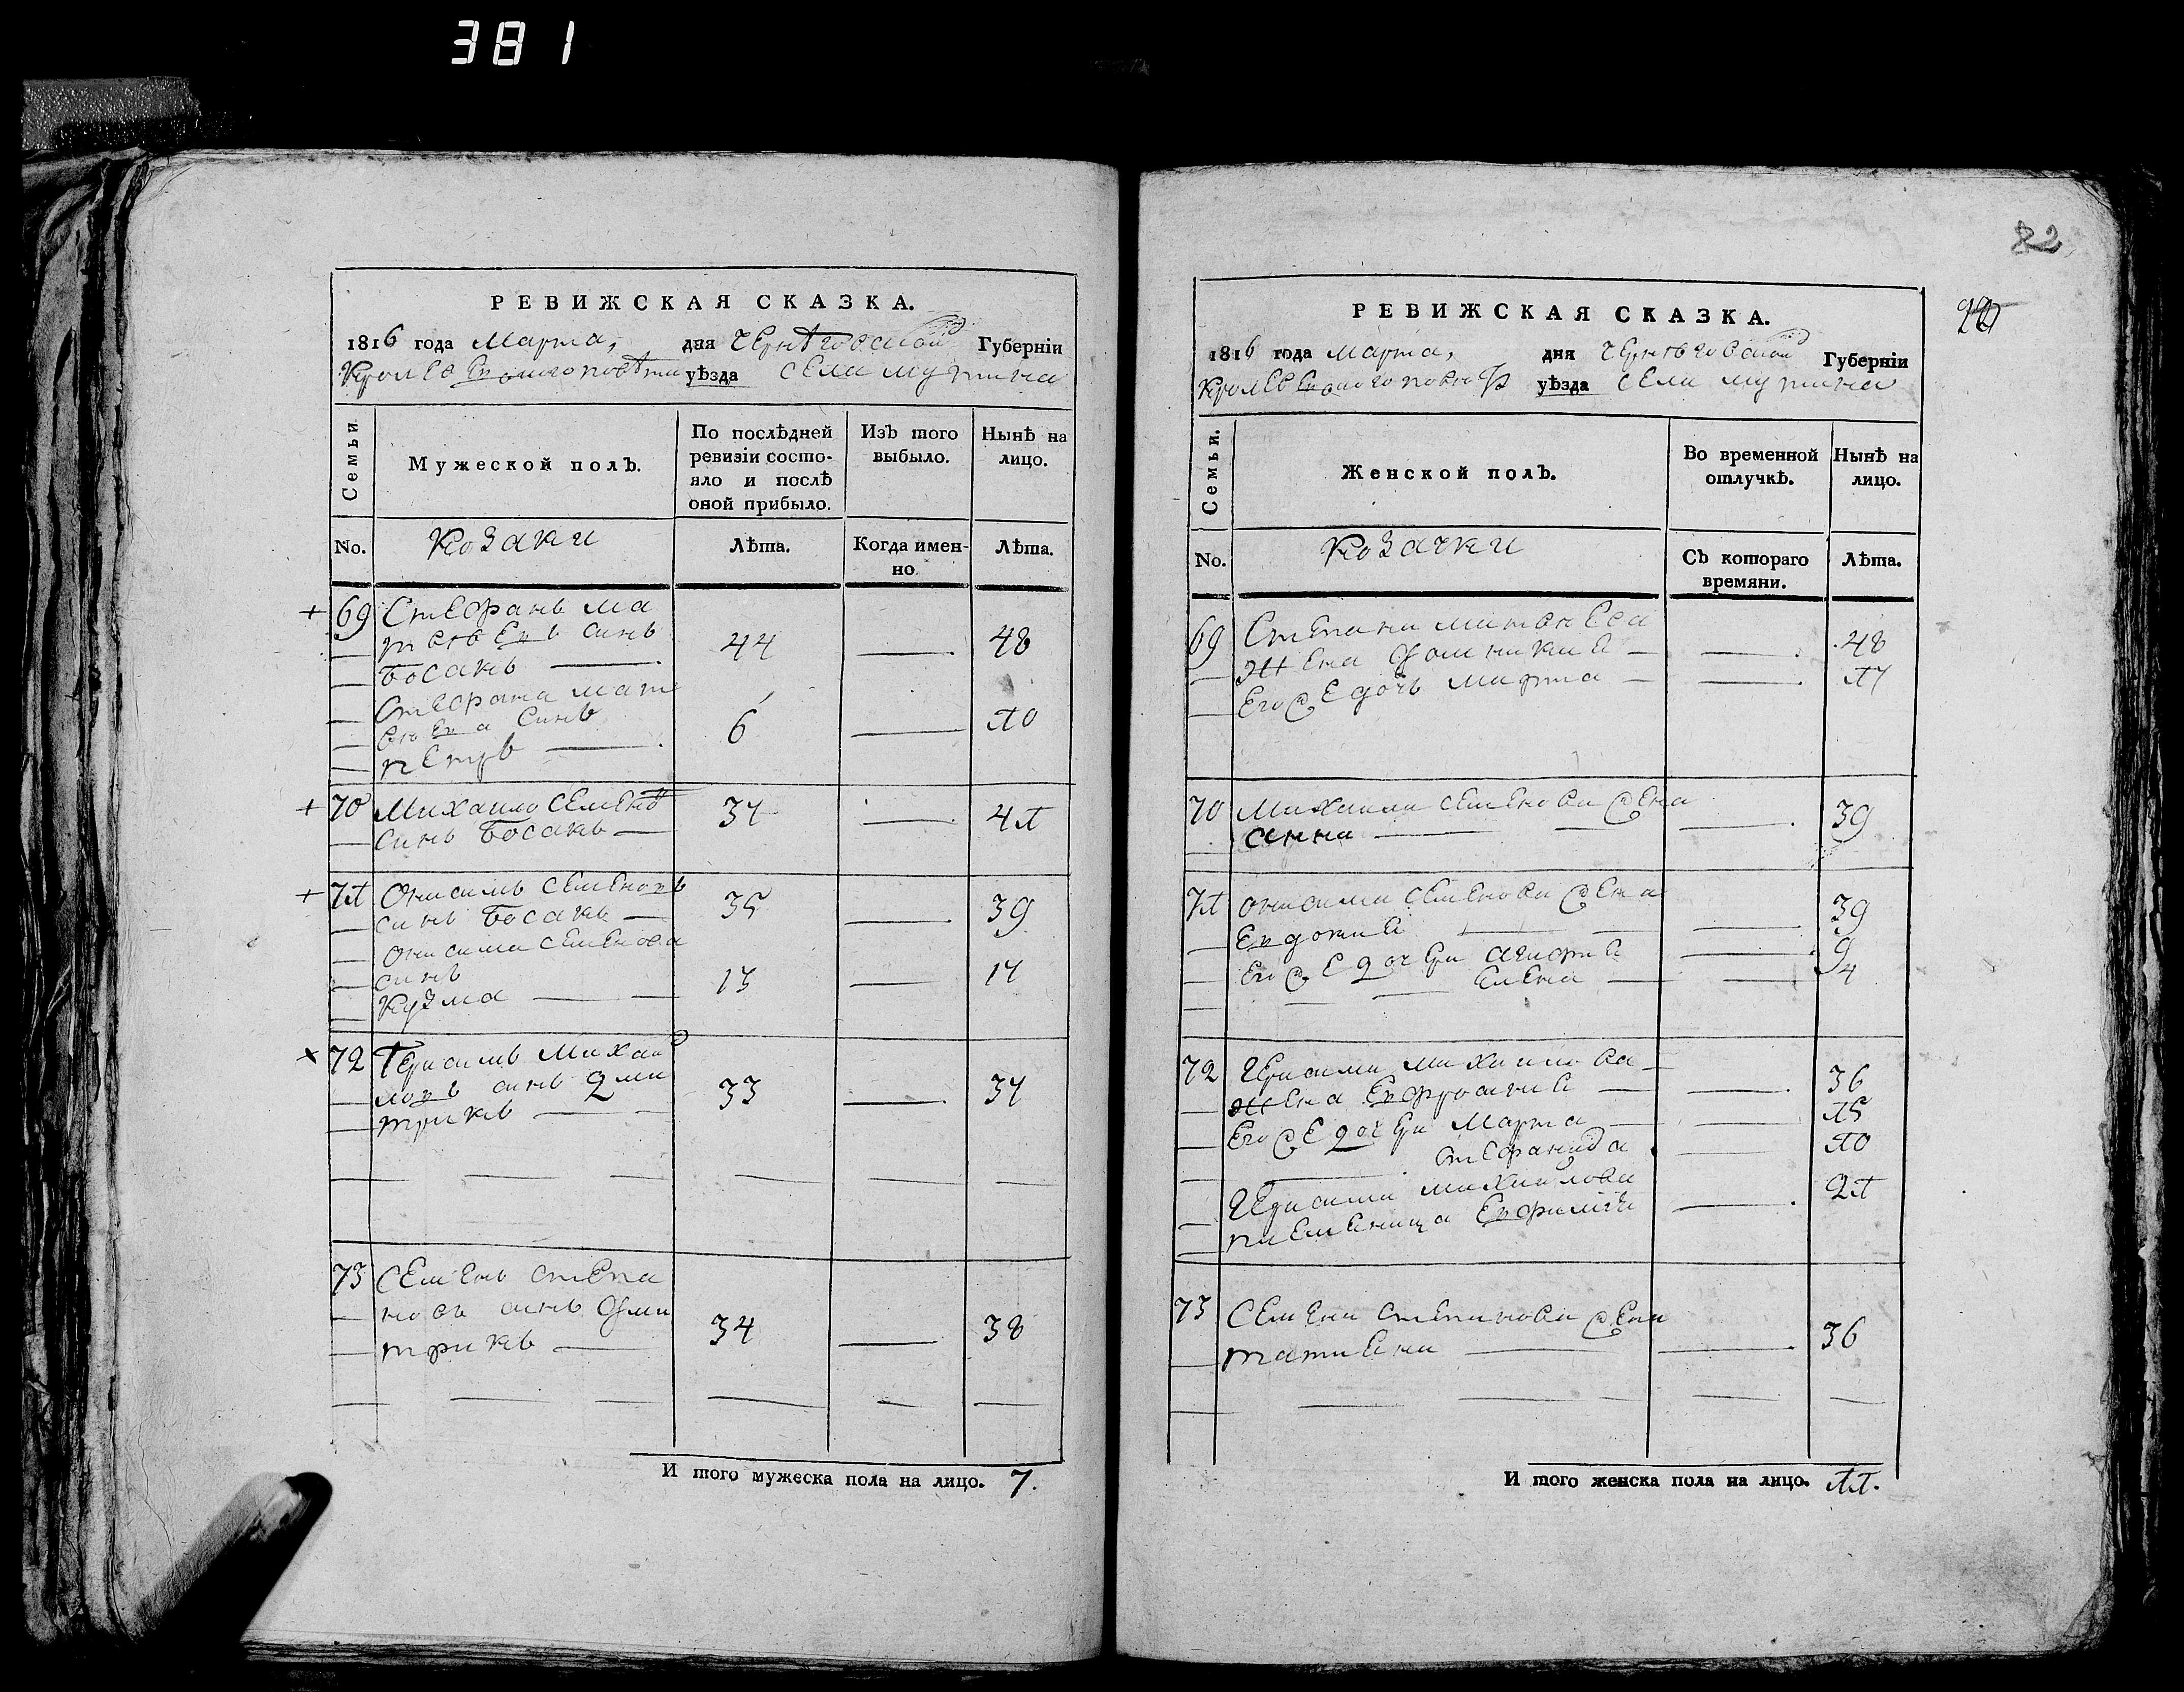 381
РЕВИЖСКАЯ СКАЗКА.
1816 года Марта, дня Чернѣговской Губерніи
Кролевецкого повѣта уѣзда села Мутина
Семьи.
Мужеской полъ.
По послѣдней ревизіи состояло и послѣ оной прибыло.
Изъ того выбыло.
Нынѣ на лицо.
No. Козаки Лѣта. Когда именно Лѣта.
+ 69 Стефанъ Ма
твѣевъ синъ 44 — 48
Босакъ —
Стефана Мат
вѣева Синъ 6 — 10
Петръ —
+ 70 Михаило Семено 37 — 41
синъ Босакъ —
+ 71 Онисимъ Семеновъ
синъ Босакъ — 35 — 39
Онисима Семенова
синъ 13 — 17
Кузма — —
× 72 Герасимъ Михаи
ловъ синъ Дми 33 — 37
трикъ —
73 Семенъ Степа
новъ синъ Дми
трикъ — 34 — 38
И того мужеска пола на лицо. 7.
82
РЕВИЖСКАЯ СКАЗКА.
1816 года Марта, дня Чернѣговской Губерніи
Кролевецкого повѣта уѣзда села Мутина
Семьи.
Женской полъ.
Во временной отлучкѣ.
Нынѣ на лицо.
No. Козачки Съ котораго времяни. Лѣта.
69 Стефана Матвѣева
жена — 48
Его же дочь Марта — 17
70 Михаила Семенова жена
Анна — 39
71 Онисима Семенова жена
Евдокия — 39
Его же дочери Агафия — 9
Елена — 4
72 Герасима Михаилова
жена Евфросиния — 36
Его же дочери Марта — 15
Стефанида — 10
Герасима Михаилова
племеница Евфимия — 21
73 Семена Степанова жена
Татияна — 36
И того женска пола на лицо. 11.